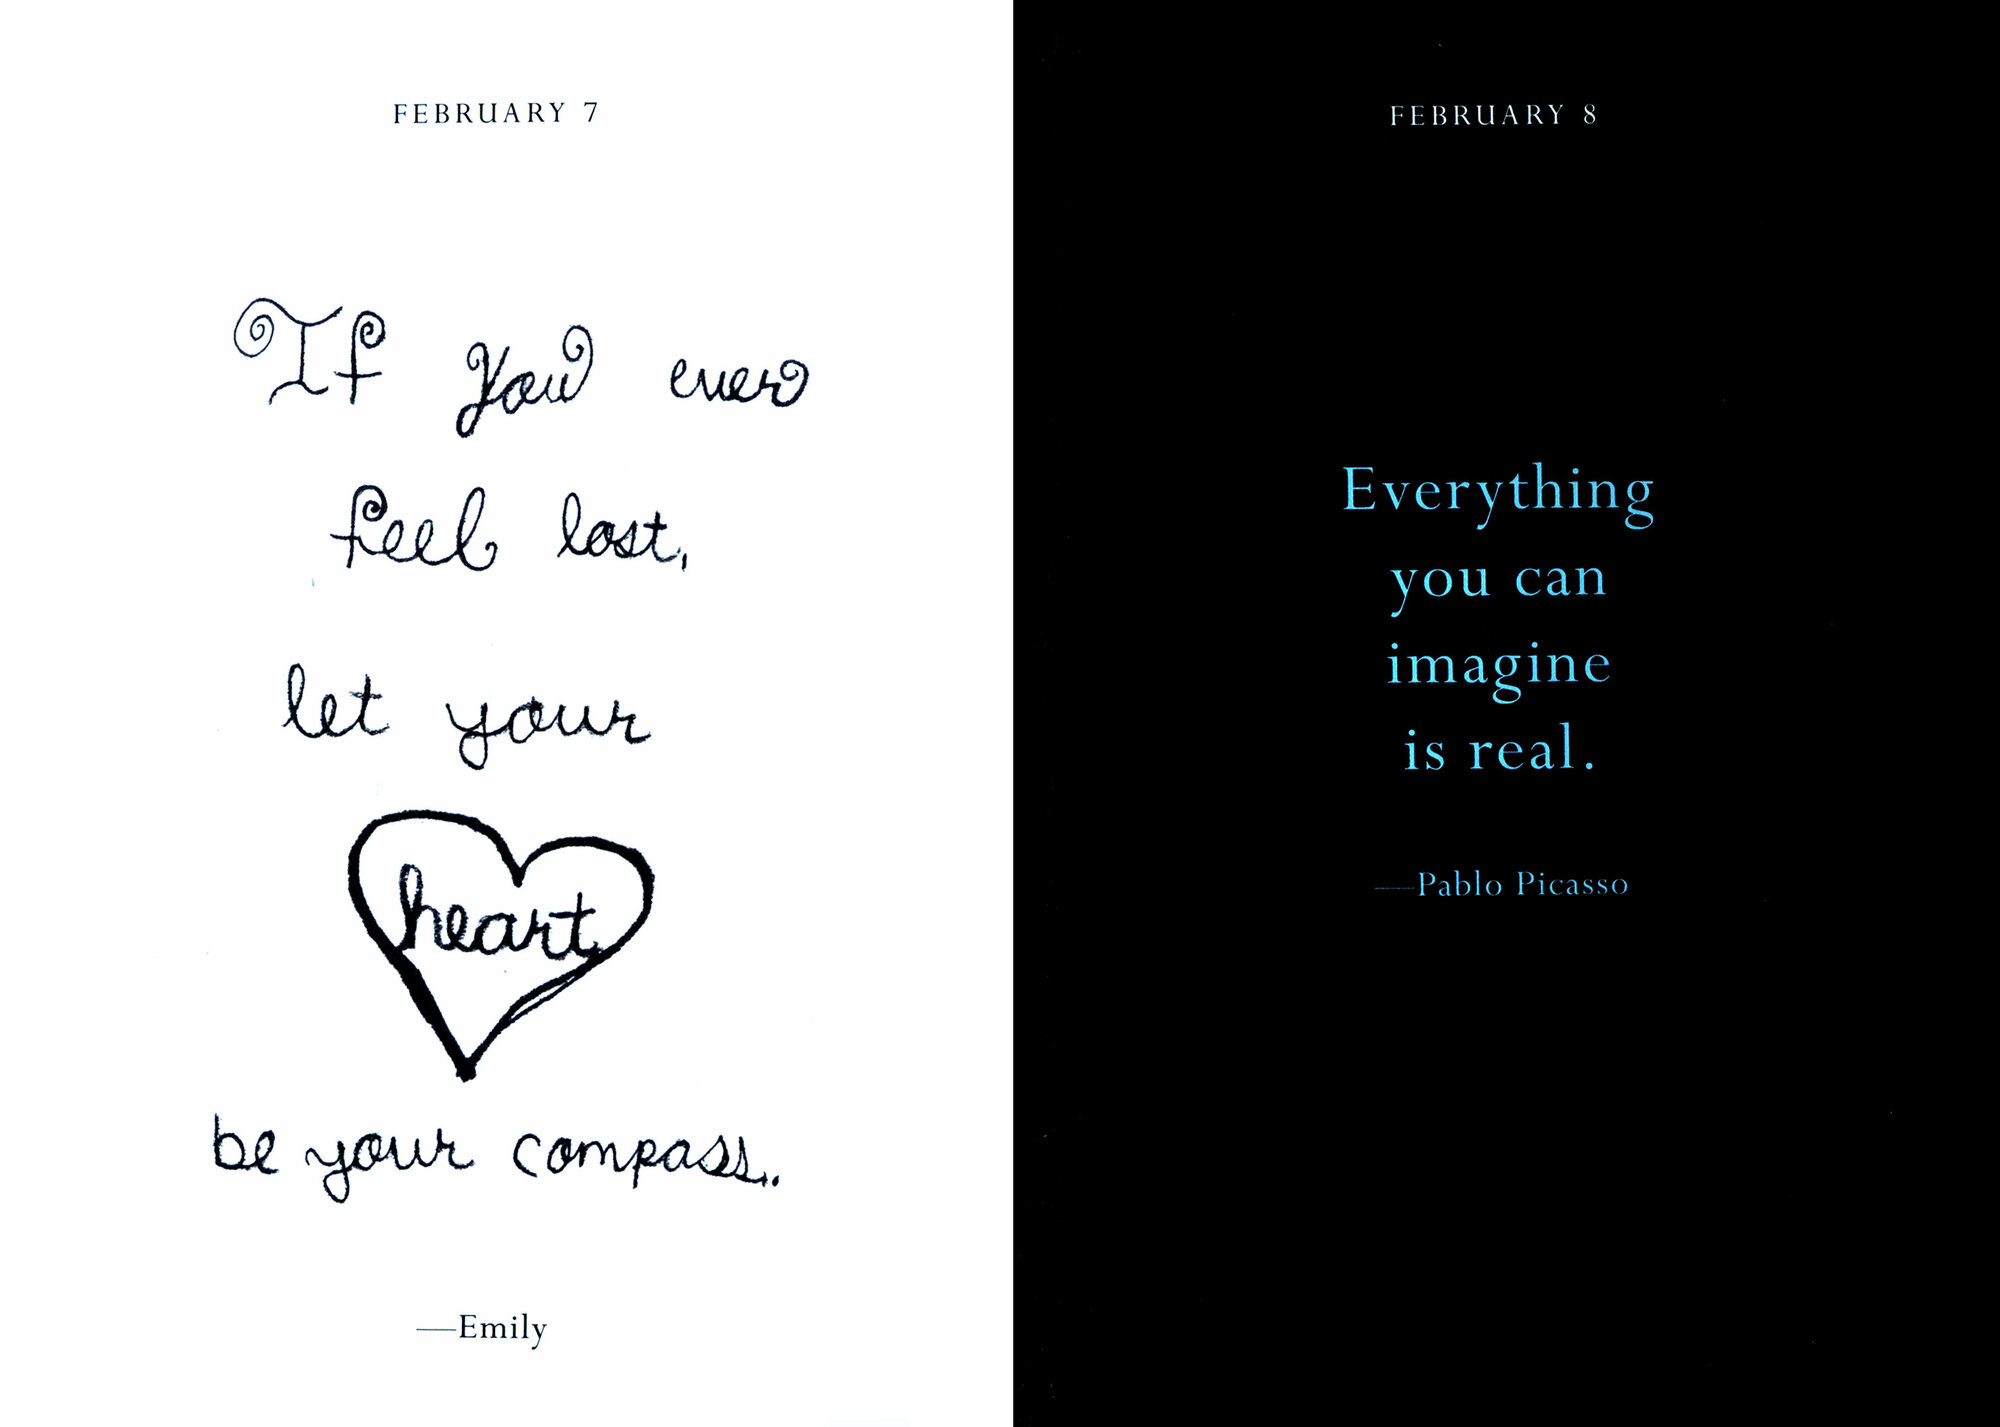 FEBRUARY 7
If you ever
feel lost,
let your
heart
be your compass..
—Emily
FEBRUARY 8
Everything
you can
imagine
is real.
—Pablo Picasso